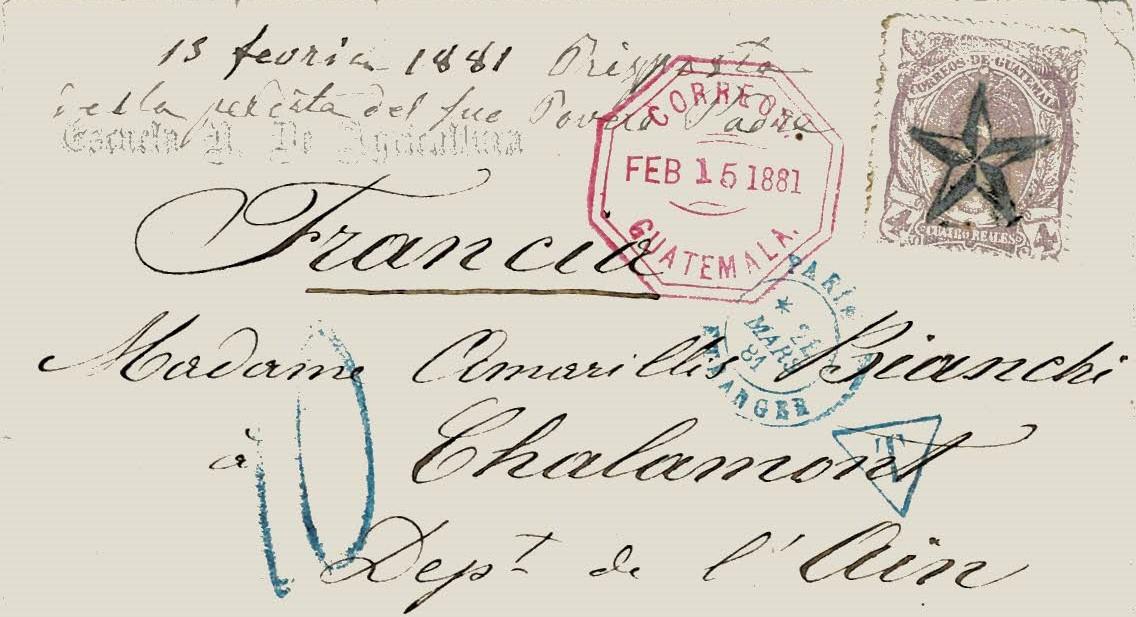 13 1881 Risposta
della del suo Povero Padre
Escuela N. De Agricultura
CORREOS DE GUATEMALA
4 CUATRO REALES 4
CORREOS.
FEB 15 1881
GUATEMALA.
Francia
PARIS
MARS
81
ETRANGER
Madame Amarillis Bianchi
T
à Chalamont
10
Dept de l'Ain